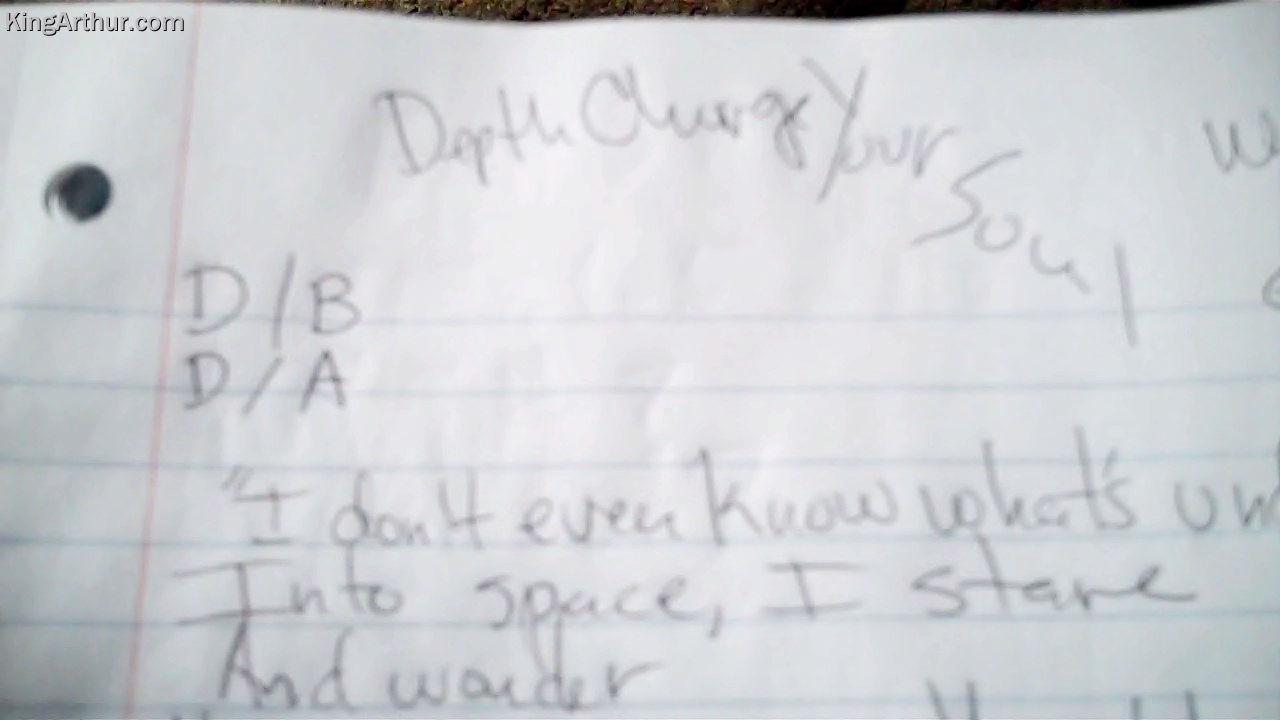 KingArthur.com
Depth Charge Your Soul
D/B
D/A
"I don't even know what's un
Into space, I stare
And wonder